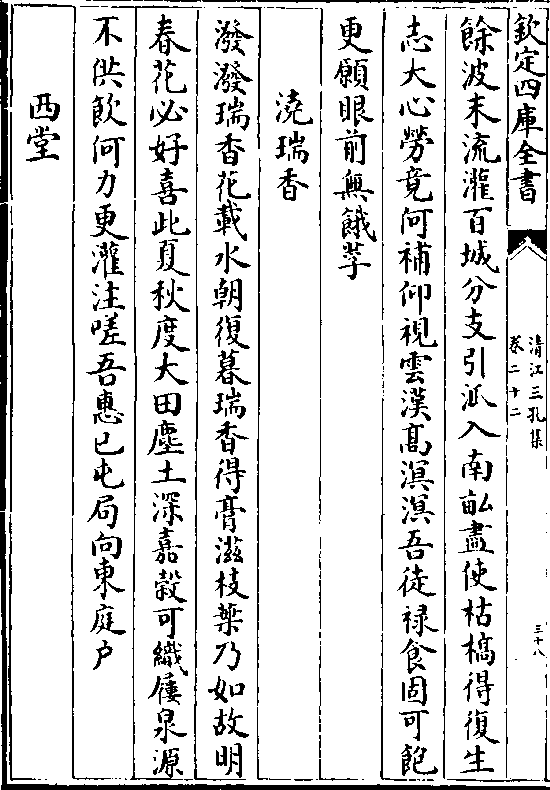 欽定四庫全書
清江三孔集
卷二十二
三十八
餘波末流灌百城分支引派入南畝盡使枯槁得復生
志大心勞竟何補仰視雲漢髙溟溟吾徒禄食固可飽
更願眼前無餓莩
澆瑞香
潑潑瑞香花載水朝復暮瑞香得膏滋枝葉乃如故明
春花必好喜此夏秋度大田塵土深嘉穀可織屨泉源
不供飲何力更灌注嗟吾惠已屯局向東庭户
西堂